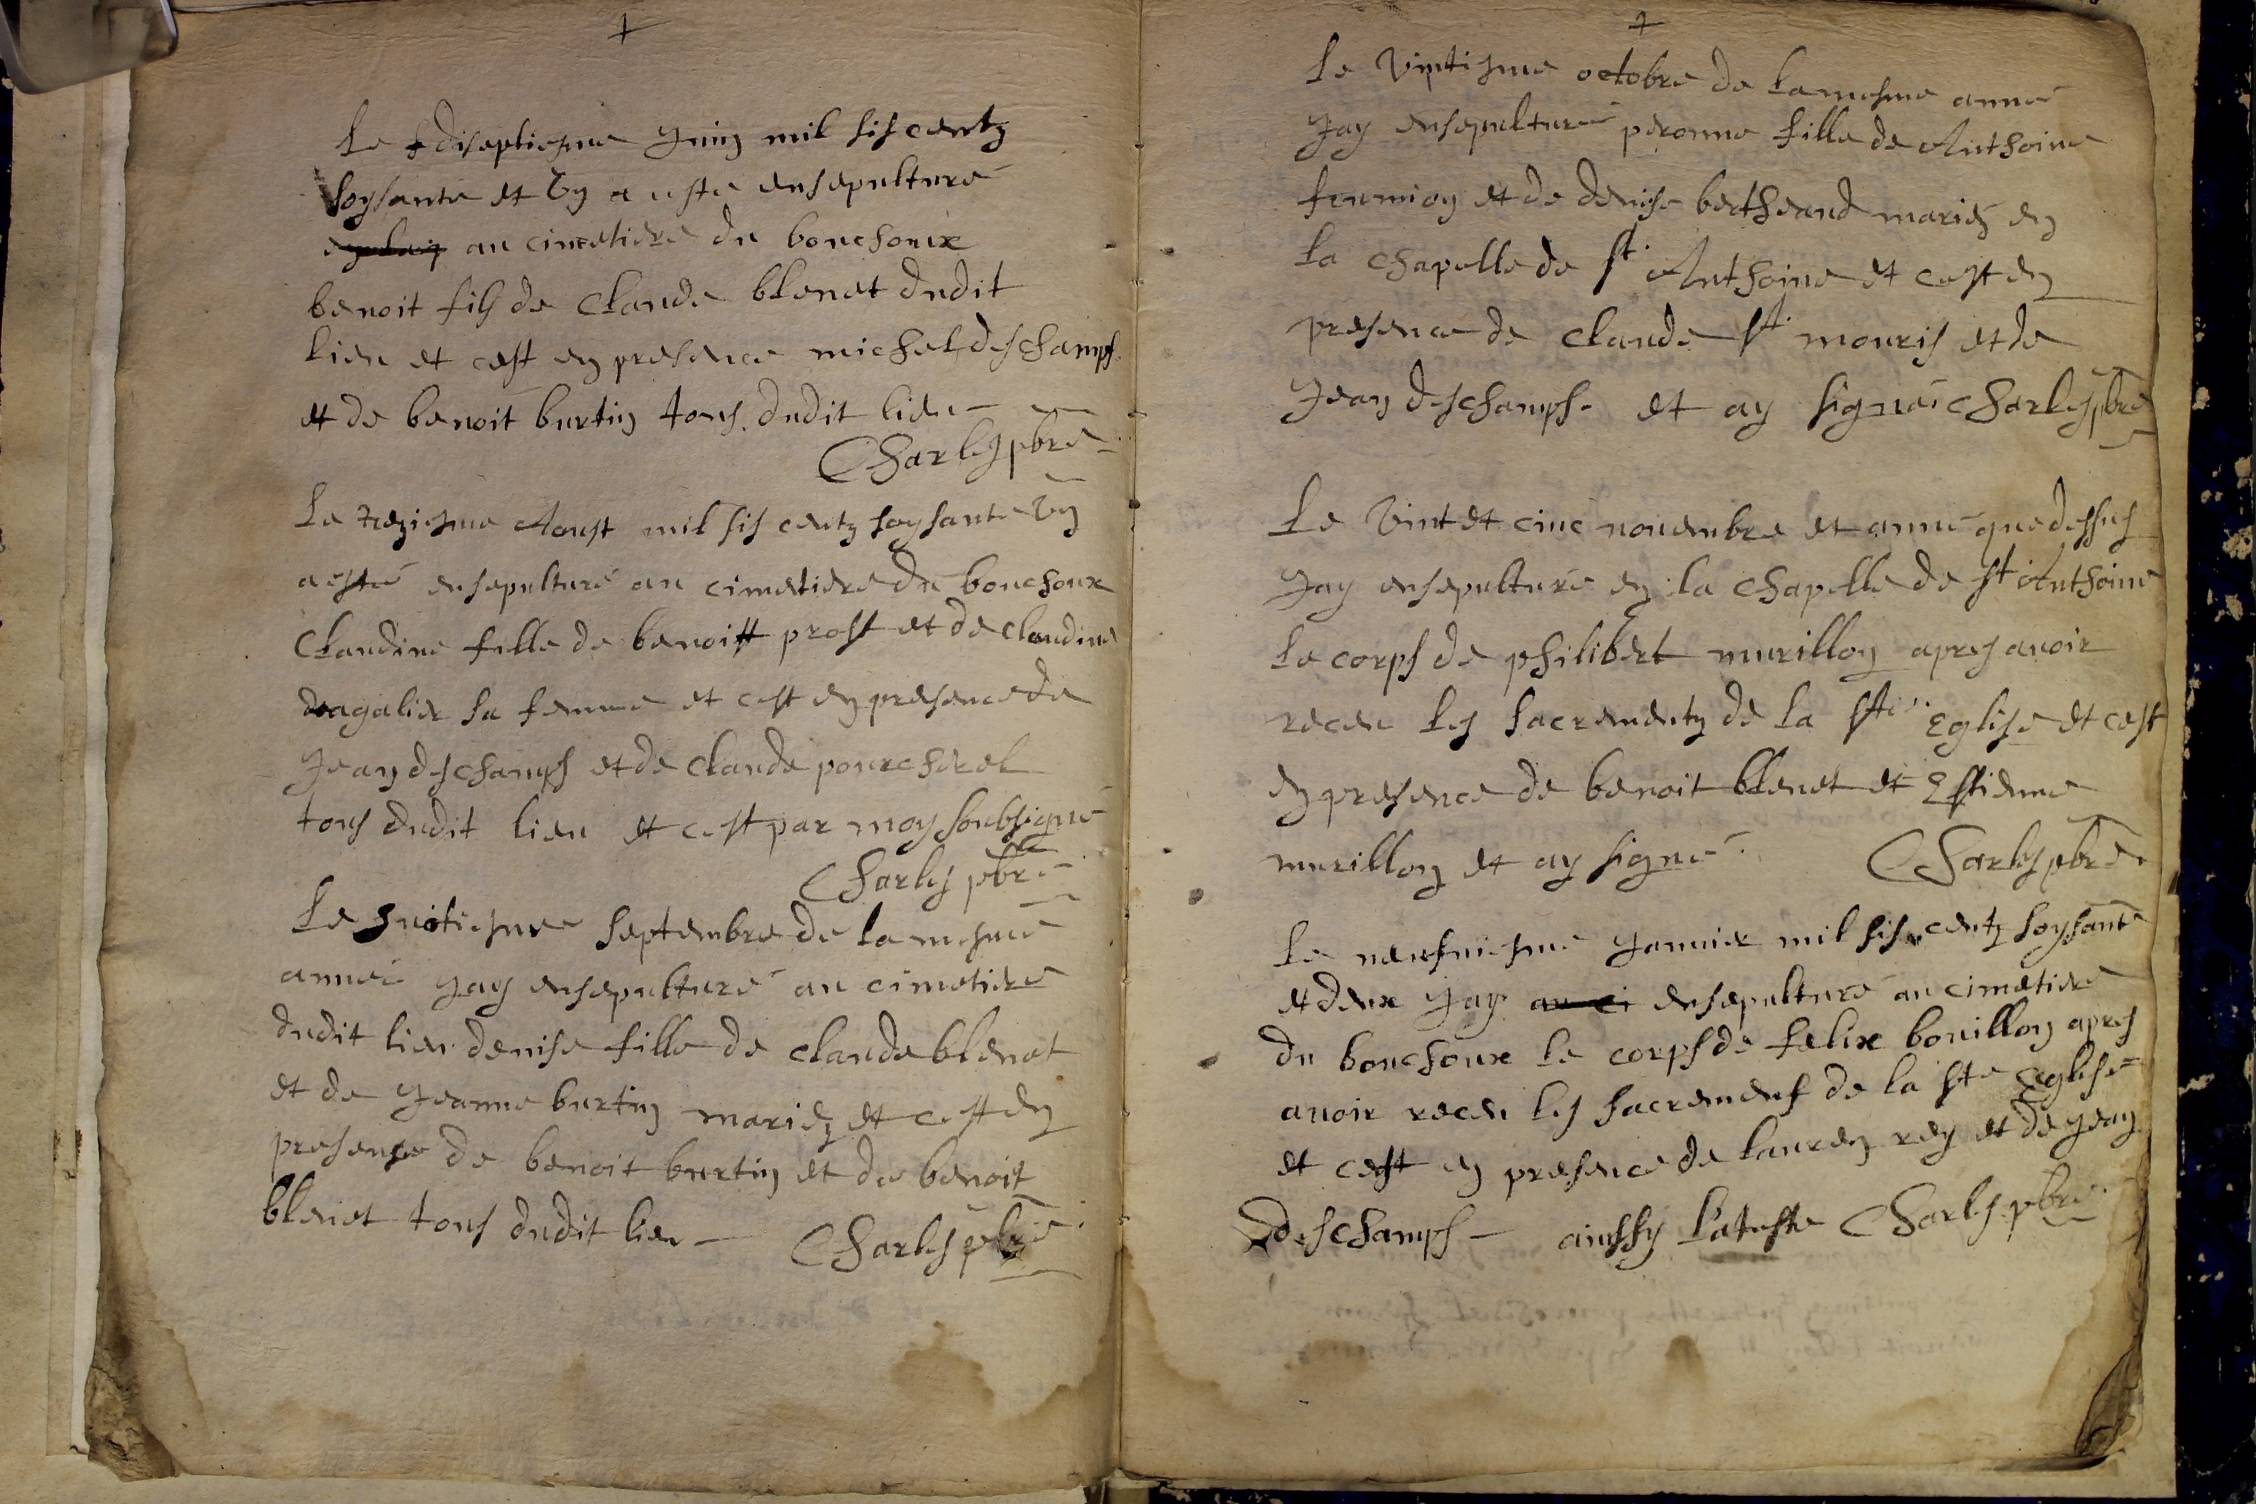 +
Le diseptiesme Juing mil sis centz
soysante et Vng a esté ensepulturé
au cimetiere du bouchoux
benoit fils de Claude blenet dudit
lieu et cest en presence michel deschamps
et de benoit burtin tous dudit lieu
Charles pbre
Le treziesme Aoust mil sis centz soysante Vng
a esté ensepulturé au cimetiere du bouchoux
Claudine fille de benoist prost et de claudine
dagalier sa femme et cest en presence de
Jean deschamps et de Claude pourcherel
tous dudit lieu et cest par moy soubsigné
Charles pbre
Le huitiesme septembre de la mesme
année Jay ensepulturé au cimetiere
dudit lieu denise fille de claude blenet
et de Jeanne burtin mariez et cest en
presence de benoit burtin et de benoit
blenet tous dudit lieu Charles pbre
+
Le Vintiesme octobre de la mesme année
Jay ensepulturé peronne fille de Anthoine
et de denise bertheaud mariez en
la chapelle de st Anthoine et cest en
presence de claude st mouris et de
Jean deschamps et ay signé Charles pbre
Le Vint et cinc nouembre et année que dessus
Jay ensepulturé en la chapelle de st Anthoine
Le corps de philibert murillon apres auoir
receu les sacrementz de la ste Eglise et cest
en presence de benoit blenet et Estienne
murillon et ay signé Charles pbre
Le neufuiesme Januier mil sis centz soysante
et deux Jay au ci ensepulturé au cimetiere
du bouchoux le corps de felix bouillon apres
auoir receu les sacrement de la ste Eglise
et cest en presence de lauren rey et de Jean
deschamps ainssy l'ateste Charles pbre